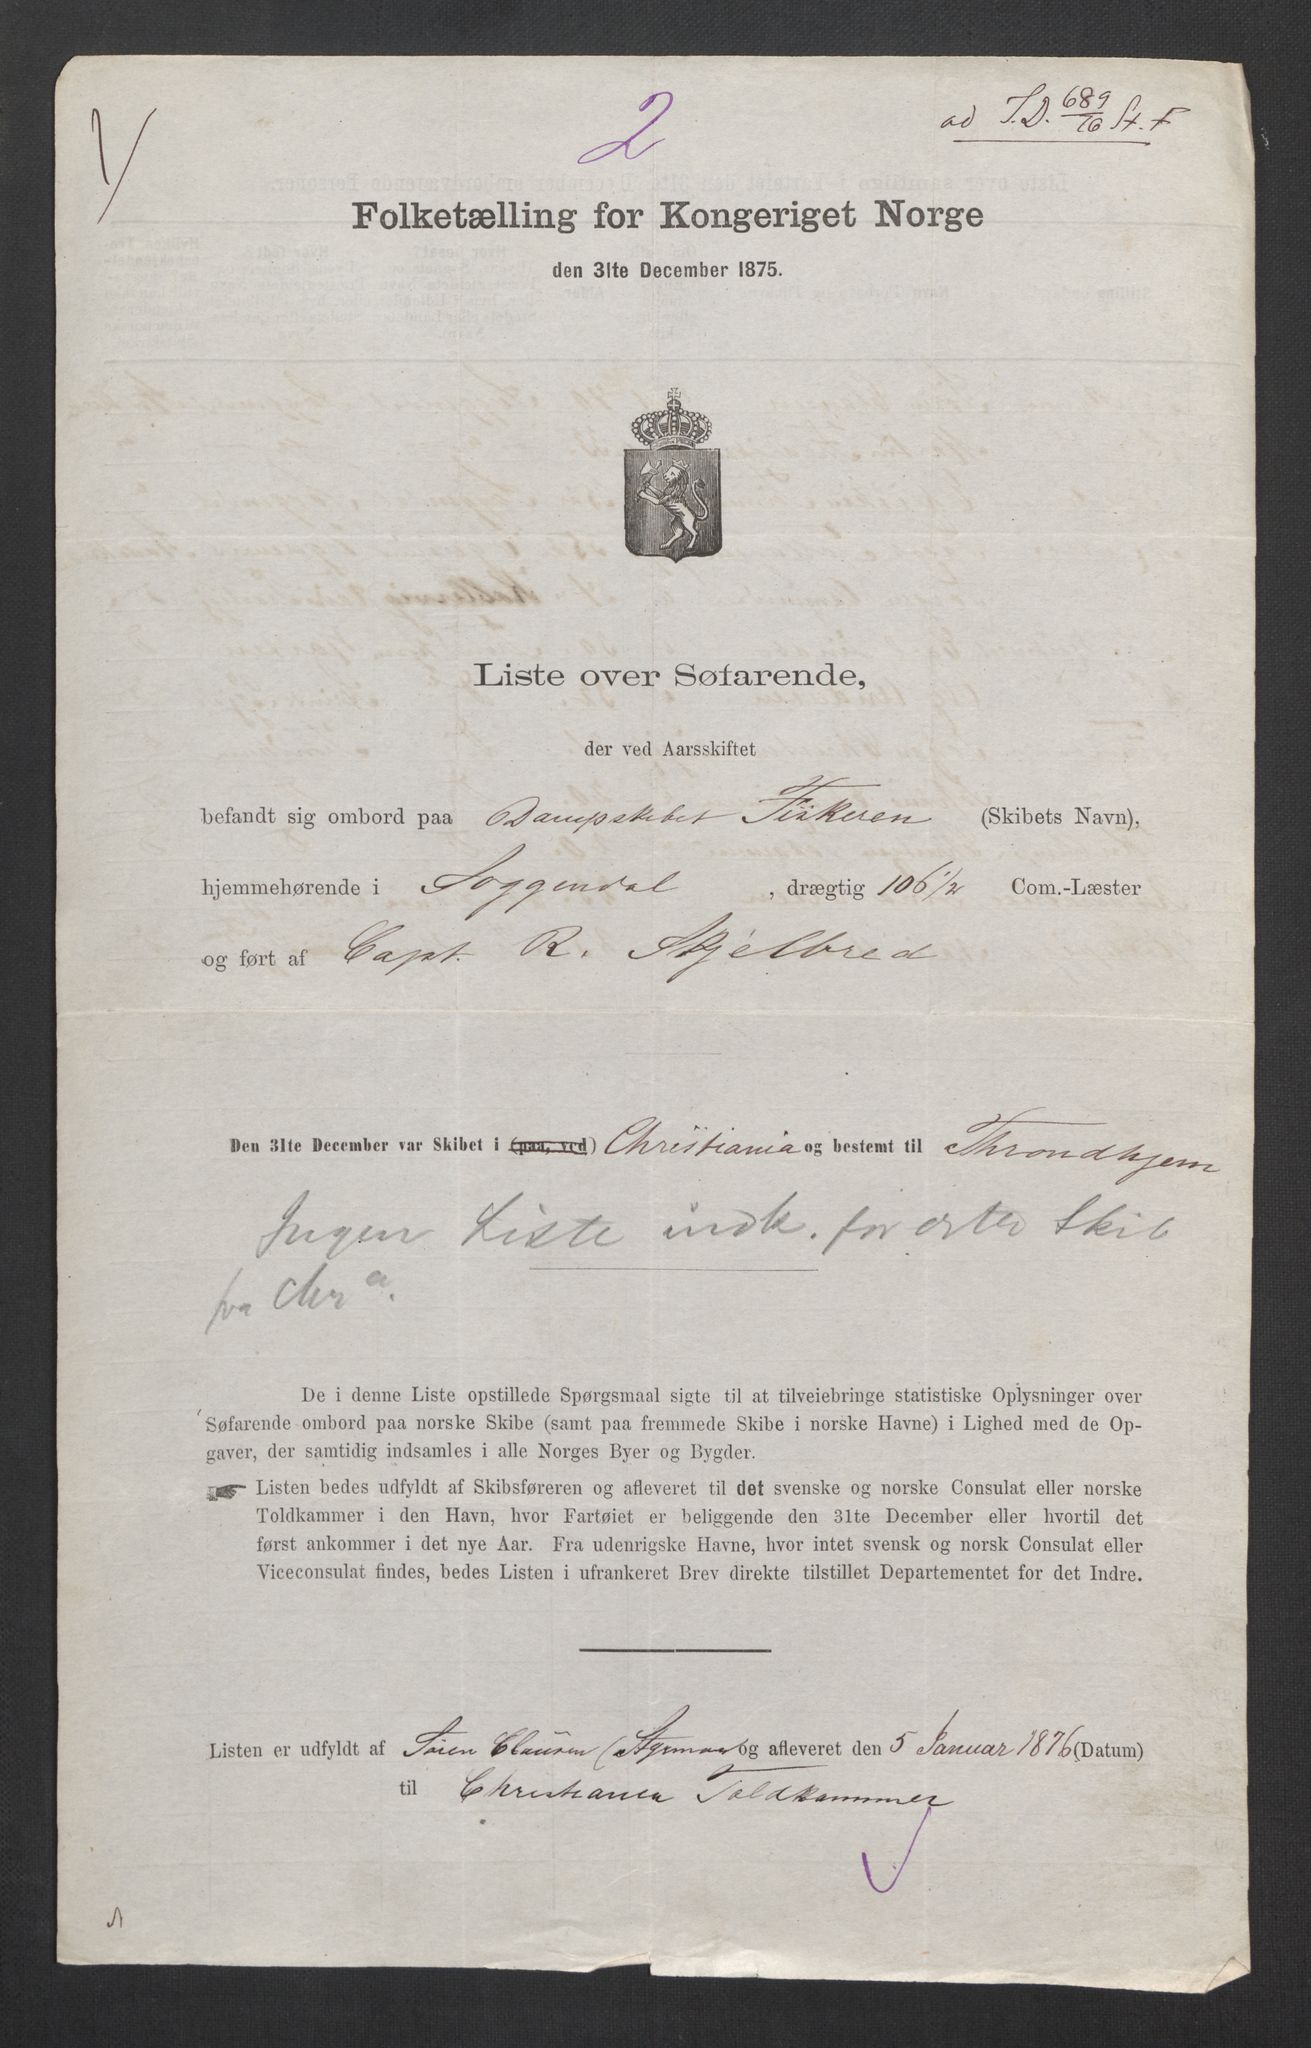 2
ad I.D. 689/76 St. F
Folketælling for Kongeriget Norge
den 31te December 1875.
Liste over Søfarende,
der ved Aarsskiftet
befandt sig ombord paa Dampskibet Fiskeren (Skibets Navn),
hjemmehørende i Soggendal, drægtig 106 1/2 Com.-Læster
og ført af Capt. R. Skjelbred
Den 31te December var Skibet i (paa, ved) Christiania og bestemt til Throndhjem
Ingen Liste indk. for dette Skib
fra Chra.
De i denne Liste opstillede Spørgsmaal sigte til at tilveiebringe statistiske Oplysninger over
Søfarende ombord paa norske Skibe (samt paa fremmede Skibe i norske Havne) i Lighed med de Op-
gaver, der samtidig indsamles i alle Norges Byer og Bygder.
☛ Listen bedes udfyldt af Skibsføreren og afleveret til det svenske og norske Consulat eller norske
Toldkammer i den Havn, hvor Fartøiet er beliggende den 31te December eller hvortil det
først ankommer i det nye Aar. Fra udenrigske Havne, hvor intet svensk og norsk Consulat eller
Viceconsulat findes, bedes Listen i ufrankeret Brev direkte tilstillet Departementet for det Indre.
Listen er udfyldt af Søren Clausen (Styrman og afleveret den 5 Januar 1876 (Datum)
til Christiania Toldkammer